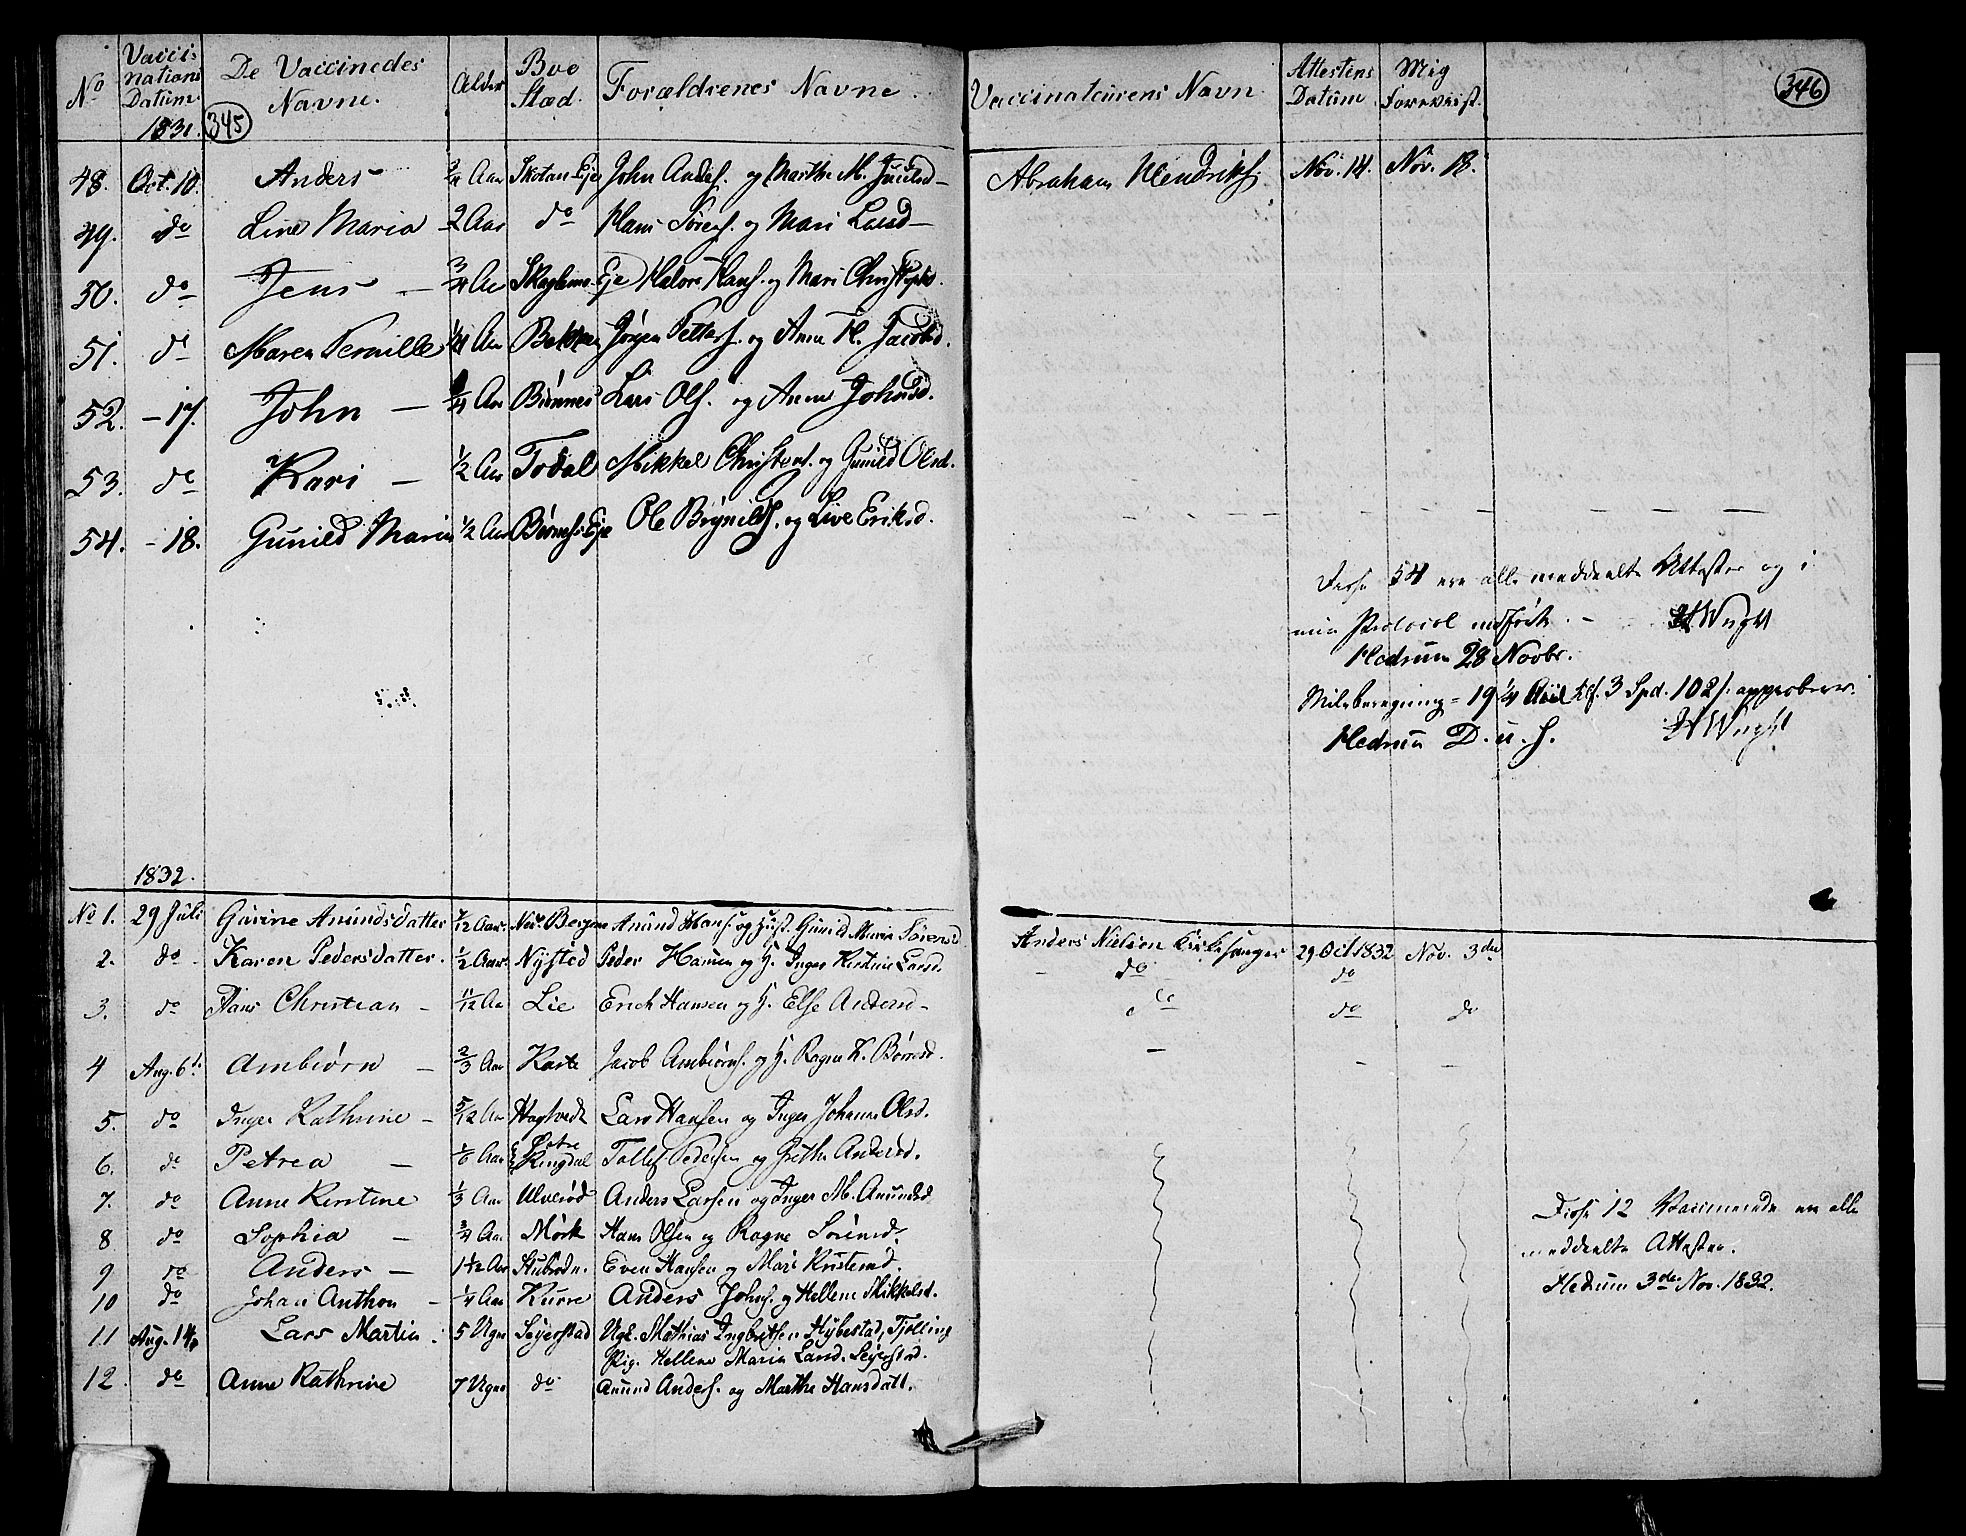 No
Vacci-
nations
Datum.
1831.
345
De Vaccinedes
Navne.
Alder
Boe
Stæd.
Forældrenes Navne
Vaccinateurens Navn
Attestens
Datum
Mig
Foreviist.
346
48. Oct. 10. Anders – ¾ Aar Skotan Eje John Anders. og Marthe M. Juulsd – Abraham Hendriks. Nov. 14. Nov. 18.
49. do Line Maria – 2 Aar do Hans Sørens. og Mari Larsd –
50. do Jens – ¾ Aar Eje Halvor Hans. og Mari Christophs.
51. do Maren Pernille ¼ Aar Bakken Jørgen Petters. og Anne K. Jacobsd.
52. – 17. John – ¼ Aar Biønnes Lars Ols. og Anne Johnsd.
53. do Kari – ½ Aar Todal Mikkel Christens. og Gunild Olsd.
54. – 18. Gunild Maria ½ Aar Eje Ole Brynilds. og Live Eriksd.
Disse 54 ere alle meddeelte Attester og i
min Protocol indført. – HWright
Hedrum 28 Novbr.
Mileberegning = 19¼ Miil til 3 Spd. 102 s. approberer.
Hedrum D. u. s. HWright
1832.
No 1. 29 Juli Gurine Anundsdatter 7/12 Aar. Ned. Bergene Anund Hans. og Hust. Gunild Maria Sørensd Anders Nielsen Kirkesanger 29 Oct 1832 Nov. 3die
2. do Karen Pedersdatter. ½ Aar. Nysted Peder Hansen og H. Inger Kirstine Larsd. – do – do
3. do Hans Christian – 11/12 Aar Lie Erich Hansen og H. Else Andersd – do do do
4 Aug. 6te Ambiørn – 2/3 Aar Kaste Jacob Ambiørns. og H. Ragne K. Børresd. – – –
5. do Inger Kathrine – 5/12 Aar Hagtvedt Lars Hansen og Inger Johanne Olsd.
6. do Petrea – 1/6 Aar Østre
Ringdal Tollef Pedersen og Grethe Andersd.
7. do Anne Kirstine 1/3 Aar Ulverød Anders Larsen og Inger M. Anundsd
8 do Sophia – ¾ Aar Mørk Hans Olsen og Ragne Sørensd.
9 do Anders – 1½ Aar Stubrødn. Even Hansen og Mari Knutsend.
10 do Johan Anthon – ¼ Aar Kurre Anders Johns. og Hellene Mikkelsd.
11 Aug. 14. Lars Martin. 5 Uger Seierstad Ugk. Mathias Ingbritsen Hybestad, Tjølling
Pig. Hellene Maria Larsd. Seierstad.
12. do Anne Kathrine 7 Uger do Anund Anders. og Marthe Hansdatt.
Disse 12 Vaccinerede ere alle
meddeelte Attester.
Hedrum 3die Nov. 1832.